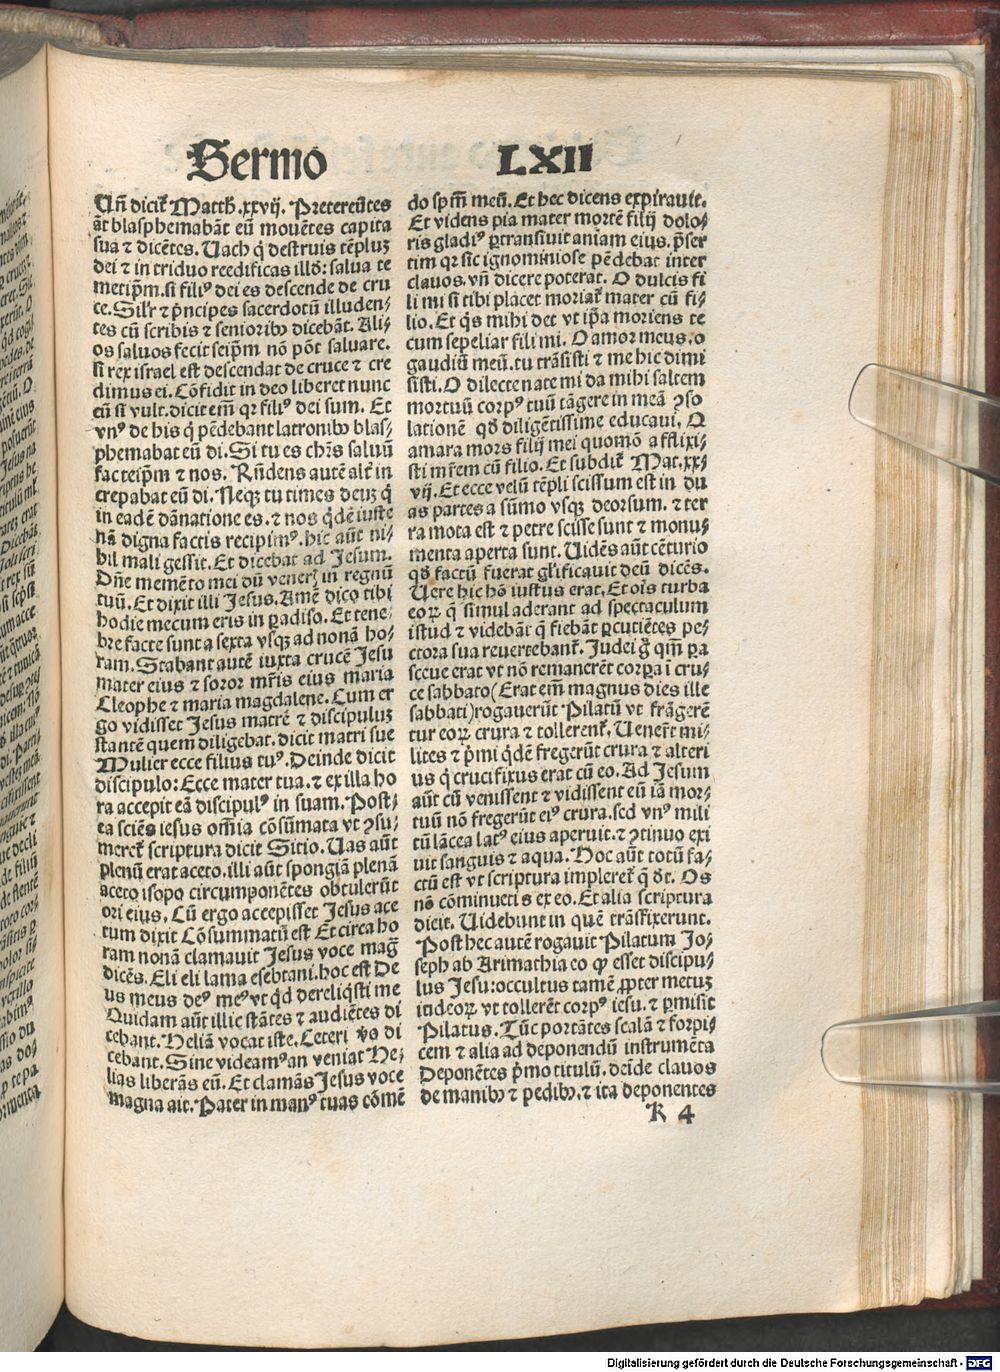 Sermo LXII
Uñ dicit᷑ Matth̄.xxvij. Pretereūtes
āt blasphemabāt eū mouētes capita
sua ⁊ dicētes. Uach q̇ destruis tēpluꝫ
dei ⁊ in triduo reedificas illō: salua te
metip̄m.si filiꝰ dei es descende de cru
ce. Silr̄ ⁊ p̄ncipes sacerdotū illuden⸗
tes cū scribis ⁊ seniorib᷒ dicebāt. Ali⸗
os saluos fecit seip̄m nō pōt saluare.
si rex israel est descendat de cruce ⁊ cre
dimus ei. Cōfidit in deo liberet nunc
eū si vult.dicit em̄ qr filiꝰ dei sum. Et
vnꝰ de his q̇ pēdebant latronib᷒ blas⸗
phemabat eū di. Si tu es chr̄s saluū
fac teip̄m ⁊ nos. Rñdens autē alt̓ in
crepabat eū di. Neqꝫ tu times deuꝫ q̇
in eadē dānatione es.⁊ nos q̇dē iuste
nā digna factis recipimꝰ. hic aūt ni⸗
hil mali gessit. Et dicebat ad Jesum.
Dn̄e memēto mei dū vener̄ in regnū
tuū. Et dixit illi Jesus. Amē dico tibi
hodie mecum eris in ꝑadiso. Et tene⸗
bre facte sunt a sexta vsqꝫ ad nonā ho⸗
ram. Stabant autē iuxta crucē Jesu
mater eius ⁊ soror mr̄is eius maria
Cleophe ⁊ maria magdalene. Cum er
go vidisset Jesus matrē ⁊ discipuluꝫ
stantē quem diligebat. dicit matri sue
Mulier ecce filius tuꝰ. Deinde dicit
discipulo: Ecce mater tua.⁊ ex illa ho
ra accepit eā discipulꝰ in suam. Post⸗
ea sciēs iesus om̄ia cōsūmata vt ꝯsu⸗
meret᷑ scriptura dicit Sitio. Uas aūt
plenū erat aceto. illi aūt spongiā plenā
aceto isopo circumponētes obtulerūt
ori eius. Cū ergo accepisset Jesus ace
tum dixit Cōsummatū est Et circa ho
ram nonā clamauit Jesus voce mag̃
dicēs. Eli eli lama esebtani.hoc est De
us meus deꝰ meꝰ vt qd dereliq̇sti me
Quidam aūt illic stātes ⁊ audiētes di
cebant. Heliā vocat iste. Ceteri v̄o di
cebant. Sine videamꝰ an veniat He⸗
lias liberās eū. Et clamās Jesus voce
magna ait. Pater in manꝰ tuas cōmē
do sp̄m meū. Et hec dicens expirauit.
Et videns pia mater mortē filij dolo⸗
ris gladiꝰ ꝑtransiuit aniam eius. p̄ser
tim qr sic ignominiose pēdebat inter
clauos. vñ dicere poterat. O dulcis fi
li mi si tibi placet moriar̄ mater cū fi⸗
lio. Et q̇s mihi det vt ip̄a moriens te
cum sepeliar fili mi. O amor meus.o
gaudiū meū.tu trāsisti ⁊ me hic dimi
sisti. O dilecte nate mi da mihi saltem
mortuū corpꝰ tuū tāgere in meā ꝯso
lationē qd̄ diligētissime educaui. O
amara mors filij mei quomō afflixi⸗
sti mr̄em cū filio. Et subdit᷑ Mat.xx⸗
vij. Et ecce velū tēpli scissum est in du
as partes a sūmo vsqꝫ deorsum. ⁊ ter
ra mota est ⁊ petre scisse sunt ⁊ monu⸗
menta aperta sunt. Uidēs aūt cēturio
qd̄ factū fuerat gl̄ificauit deū dicēs.
Uere hic hō iustus erat. Et oīs turba
eoꝝ q̇ simul aderant ad spectaculum
istud ⁊ videbāt q̄ fiebāt ꝑcutiētes pe⸗
ctora sua reuertebant᷑. Judei g̊ qm̄ ꝑa
sceue erat vt nō remanerēt corꝑa ī cru⸗
ce sabbato (Erat em̄ magnus dies ille
sabbati) rogauerūt Pilatū vt frāgerē
tur eoꝝ crura ⁊ tollerent᷑. Uenerūt mi⸗
lites ⁊ p̄mi q̇dē fregerūt crura ⁊ alteri
us q̇ crucifixus erat cū eo. Ad Jesum
aūt cū venissent ⁊ vidissent eū iā mor⸗
tuū nō fregerūt eiꝰ crura. sed vnꝰ mili
tū lācea latꝰ eius aperuit. ⁊ ꝯtinuo exi
uit sanguis ⁊ aqua. Hoc aūt totū fa⸗
ctū est vt scriptura impleret᷑ q̄ d̄t. Os
nō cōminueti s ex eo. Et alia scriptura
dicit. Uidebunt in quē trāsfixerunt.
Post hec autē rogauit Pilatum Jo⸗
seph ab Arimathia eo ꝙ esset discipu⸗
lus Jesu:occultus tamē ꝓpter metuꝫ
iudeoꝝ vt tollerēt corpꝰ iesu. ⁊ ꝑmisit
Pilatus. Tūc portātes scalā ⁊ forpi⸗
cem ⁊ alia ad deponendū instrumēta
Deponētes p̄mo titulū. deīde clauos
de manib᷒ ⁊ pedib᷒.⁊ ita deponentes
K 4
Digitalisierung gefördert durch die Deutsche Forschungsgemeinschaft - DFG